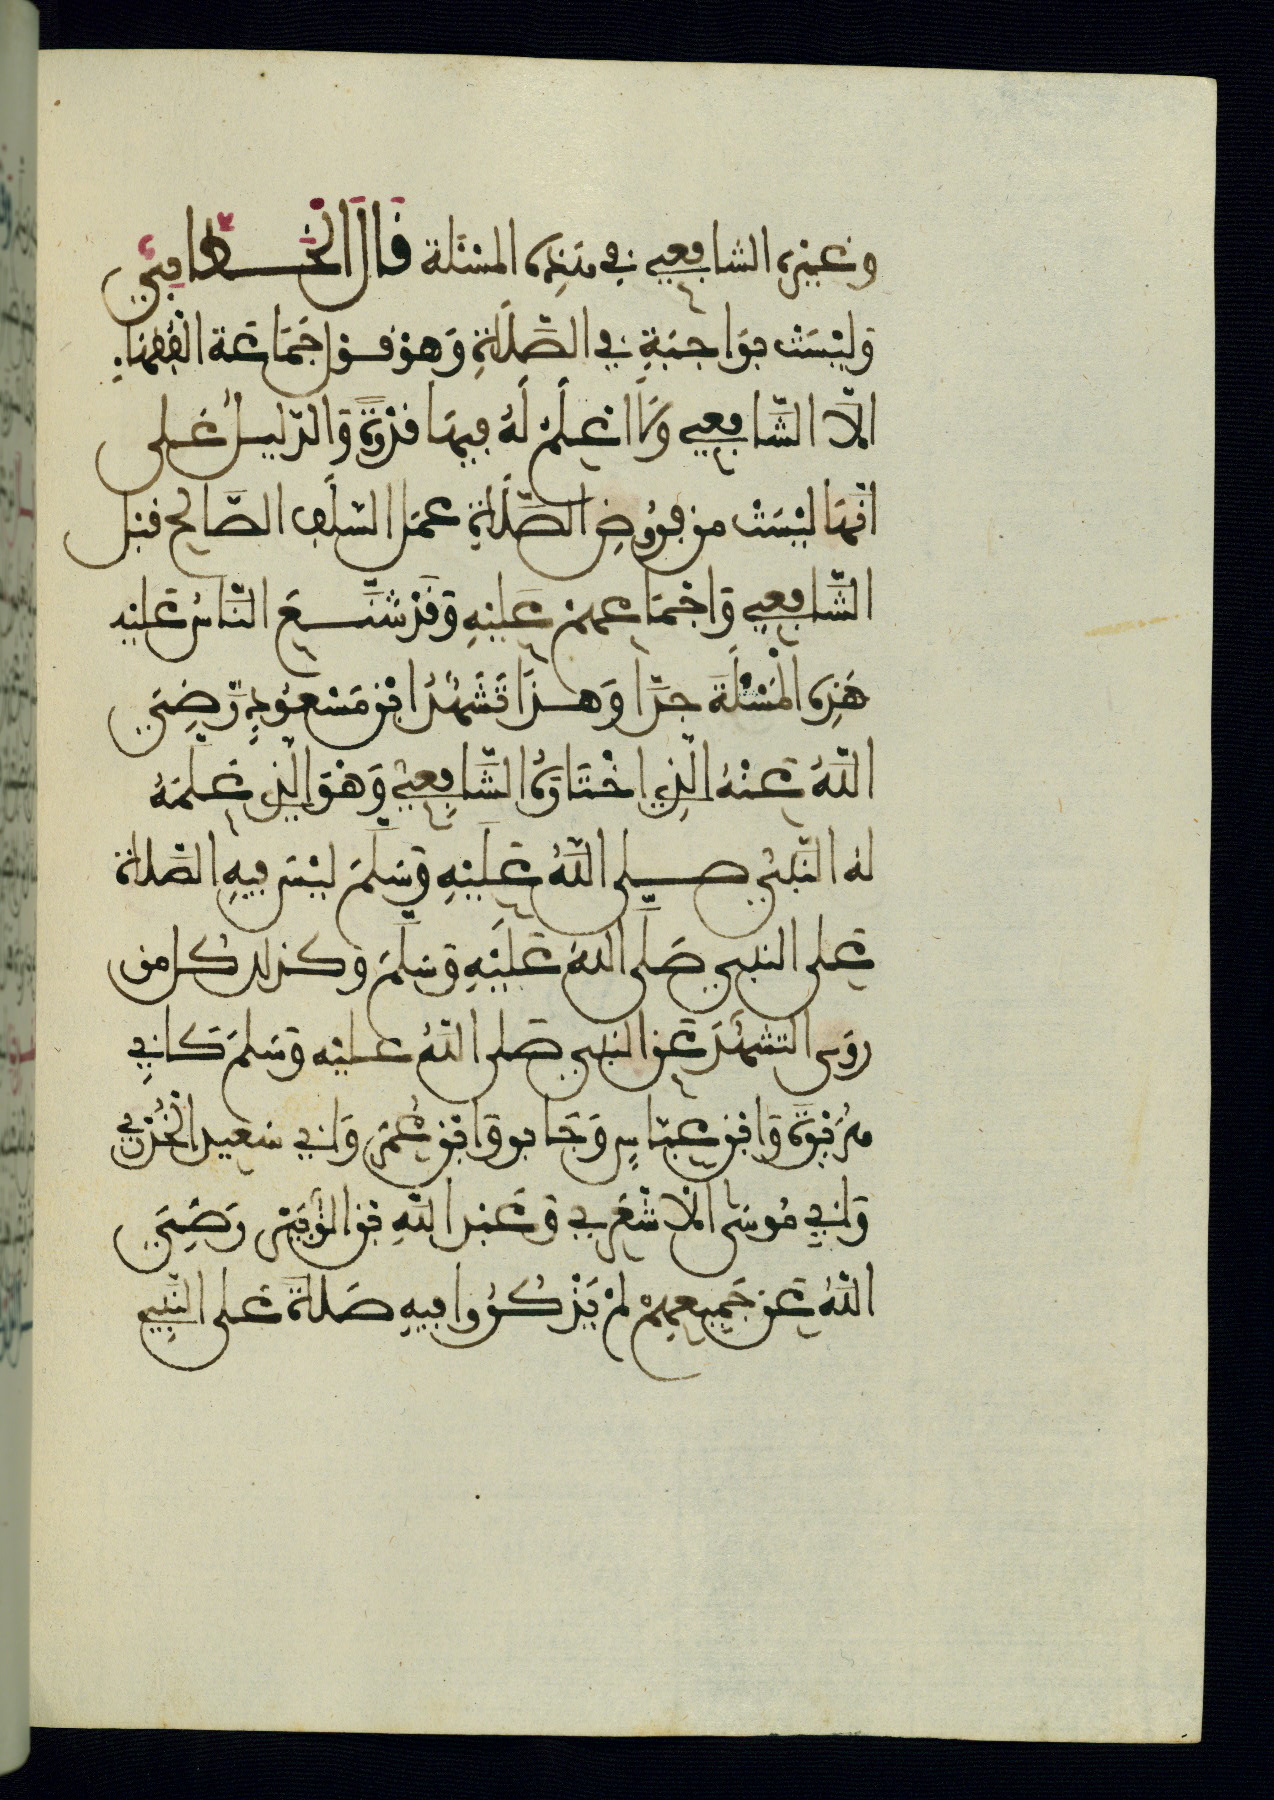 وغيره الشافعي في هذه المسئلة قَالَ الْخَطَّابِيُّ
وَلَيْسَتْ بِوَاجِبَةٍ في الصَّلَاةِ وَهوَ قول جَمَاعَة الْفُقَهَاءِ
الَّا الشَّافِعي وَلَا اعْلَمُ لَهُ فِيهَا قُدْوَةً وَالدَّليلُ عَلى
انَّهَا لَيْسَتْ من فُرُوضِ الصَّلَاةِ عمَل السَّلَفِ الصَّالح قبْل
الشَّافِعي وَاجْمَاعهمْ عَلَيْهِ وَقَدْ شَنَّعَ النَّاسُ عَلَيْه
هَذِه الْمَسْئَلَةَ جِدًّا وَهذَا تَشَهُّدُ ابْن مَسْعُودٍ رَّضِيَ
اللَّهُ عَنْهُ الَّذِي اخْتَارَهُ الشَّافِعِيُّ وَهْوَ الَّذِي عَلَّمَهُ
لَه النَّبيُّ صلى اللَّهُ عَلَيْهِ وَسَلَّمَ لَيْسَ فِيهِ الصَّلاةُ
عَلى النبي صَلَّى اللَّهُ عَلَيْهِ وَسَلَّمَ وَكذلك كل من
رَوَى التَّشَهُّدَ عَن النبي صَلى اللَّهُ عليْه وَسَلَّمَ كَابي
هُرَيْرَةَ وَابْنِ عَبَّاسٍ وَجَابر وَابْن عُمَرَ وَابي سَعِيد الْخُدْري
وَابي مُوسَى الاشْعَري وَعَبْد اللَّهِ بْن الزُّبَيْر رَضِيَ
اللَّهُ عَن جَمِيعِهِمْ لَمْ يَذْكُرُوا فِيهِ صَلَاةً عَلى النَّبِيِّ